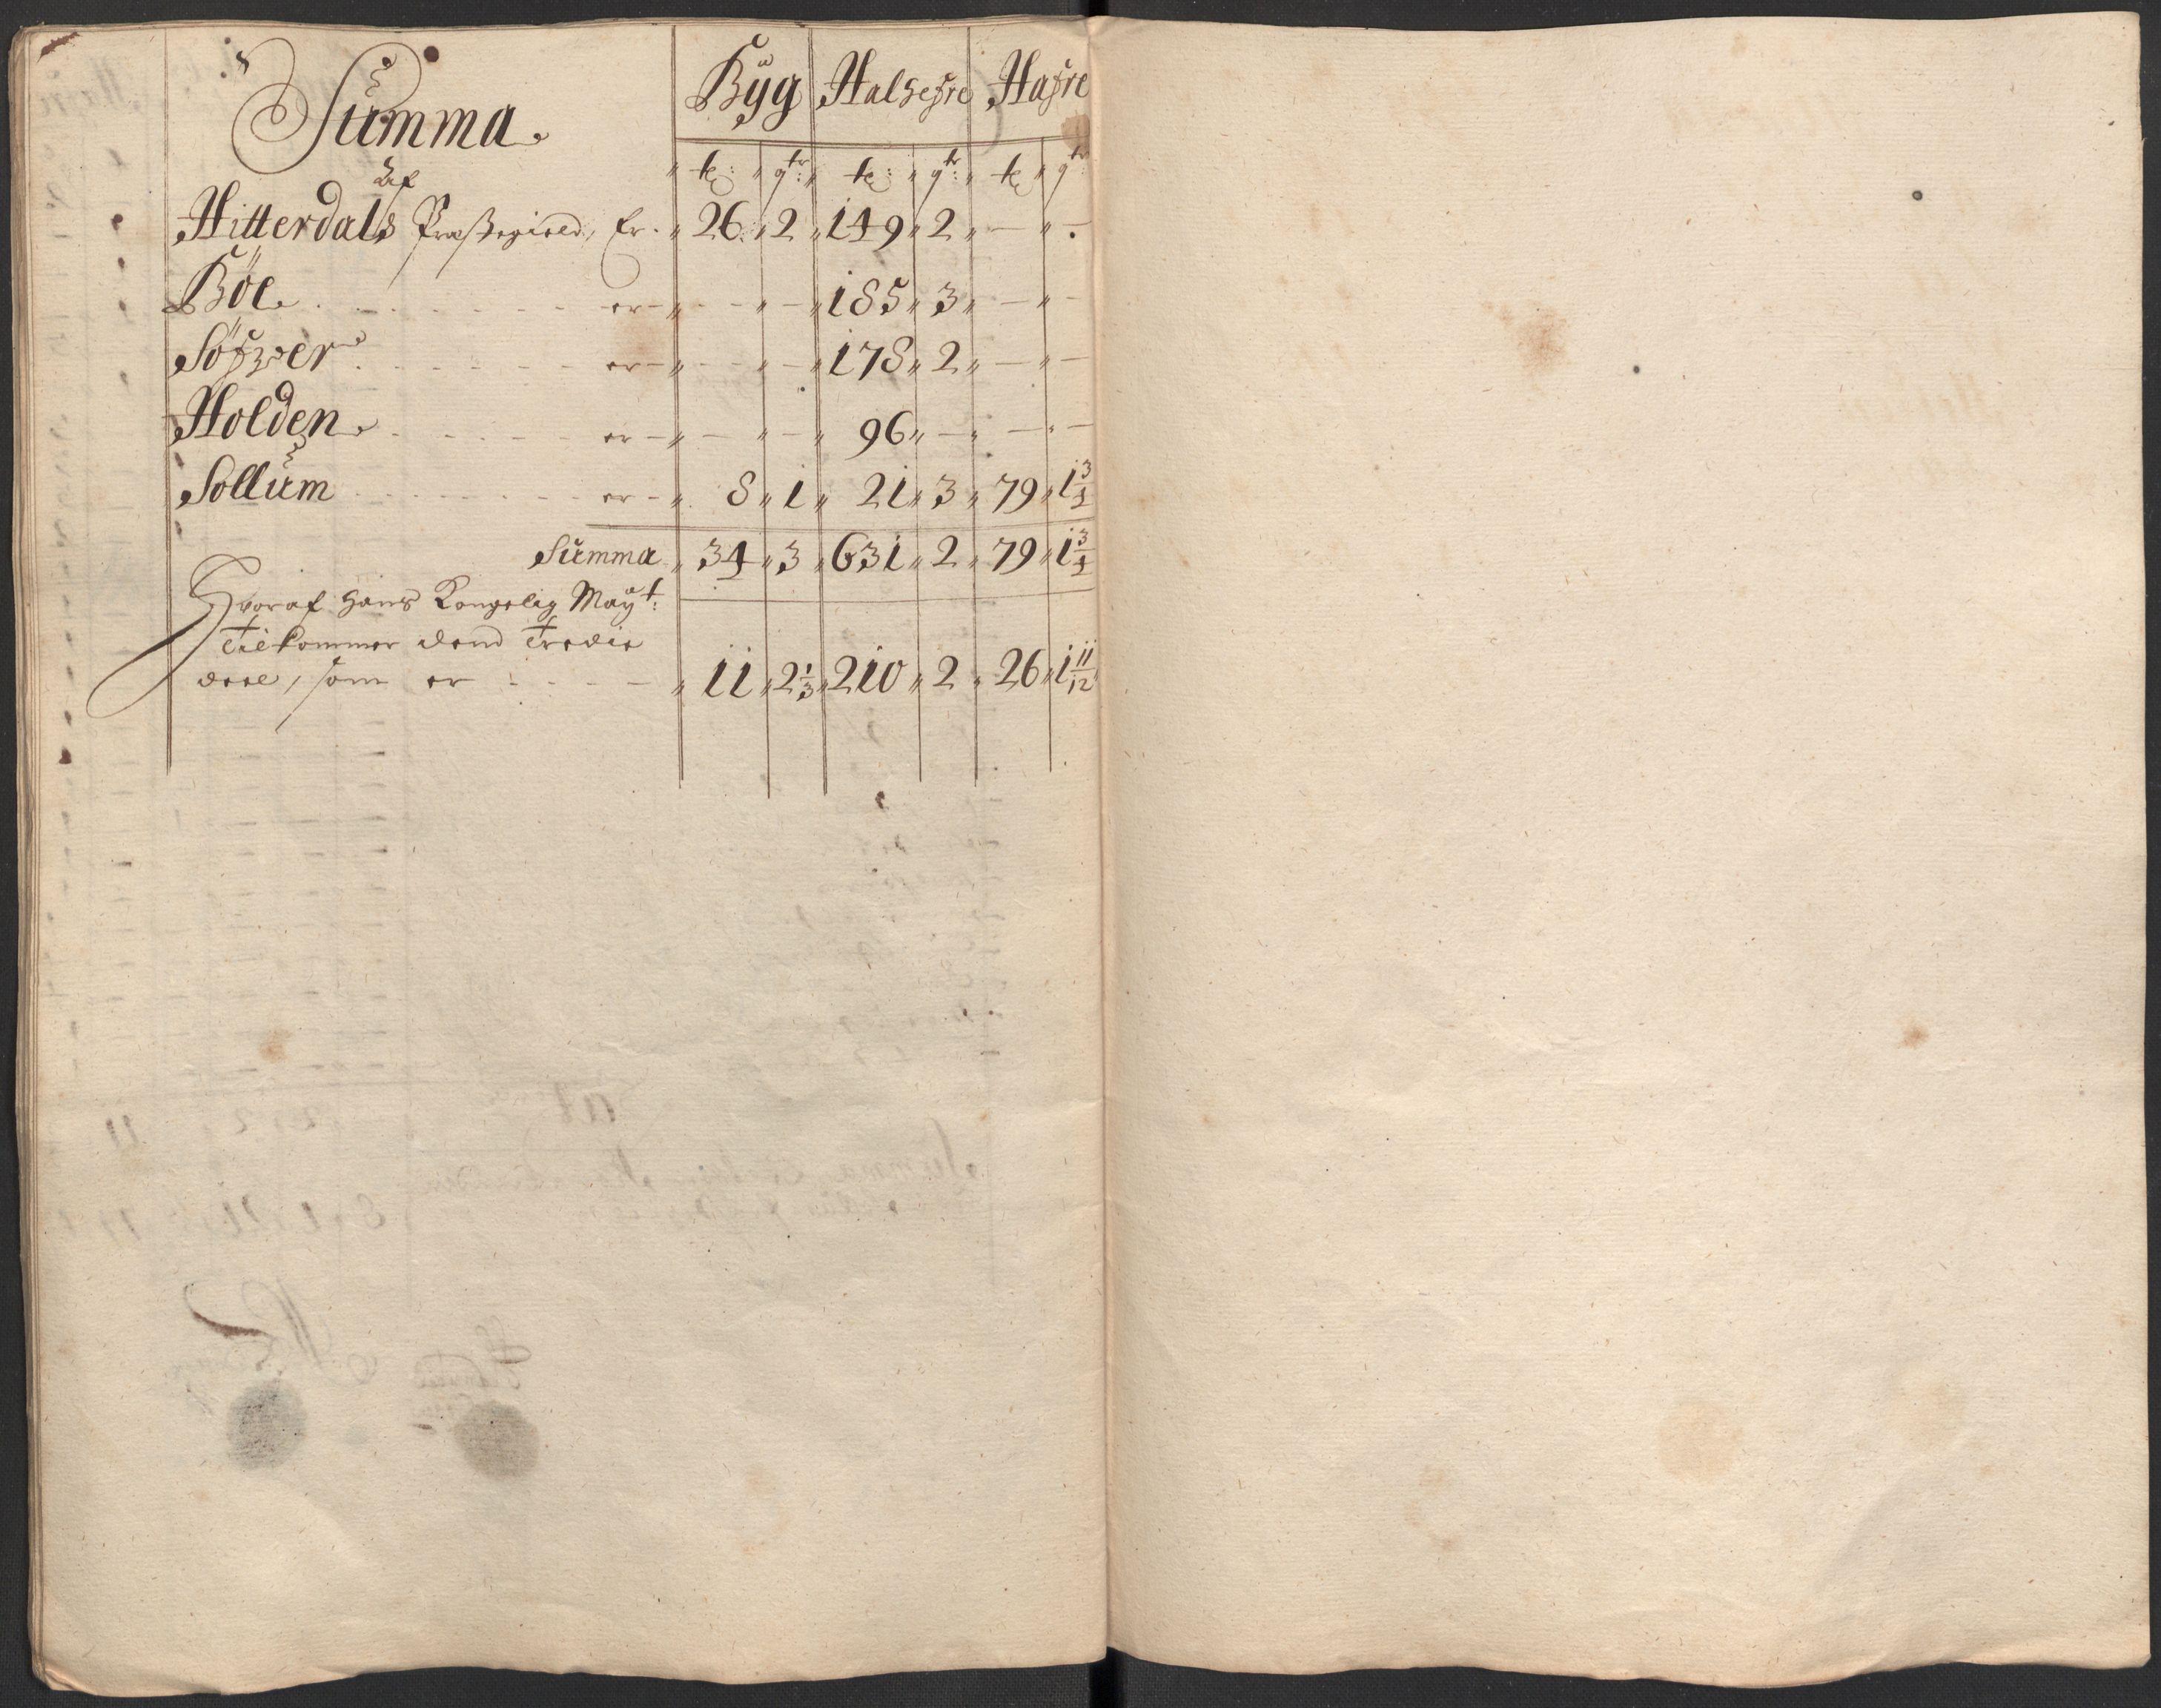 Summa Byg Halsefre Hafre
Af tr: qtr: tr: qtr: tr qtr
Hitterdals Præstegield, Er. 26 2 149 2 — -
Böe er — — 185 3 — -
Söfver er — — 178 2 — —
Holden er — — 96 — — —
Sollum er 8 1 21 3 79 1 3/4
Summa 34 3 631 2 79 1 3/4
Hvoraf Hans Kongelig Mayt:
Tilkommer dend Tredie
deel, som er - - - 11 2 1/3 210 2 26 1 11/12